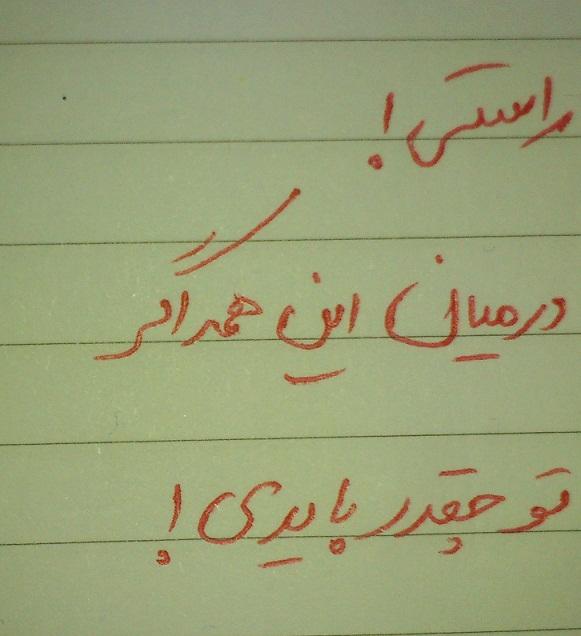 راستی!
در میان این همه اگر
تو چقدر بایدی!